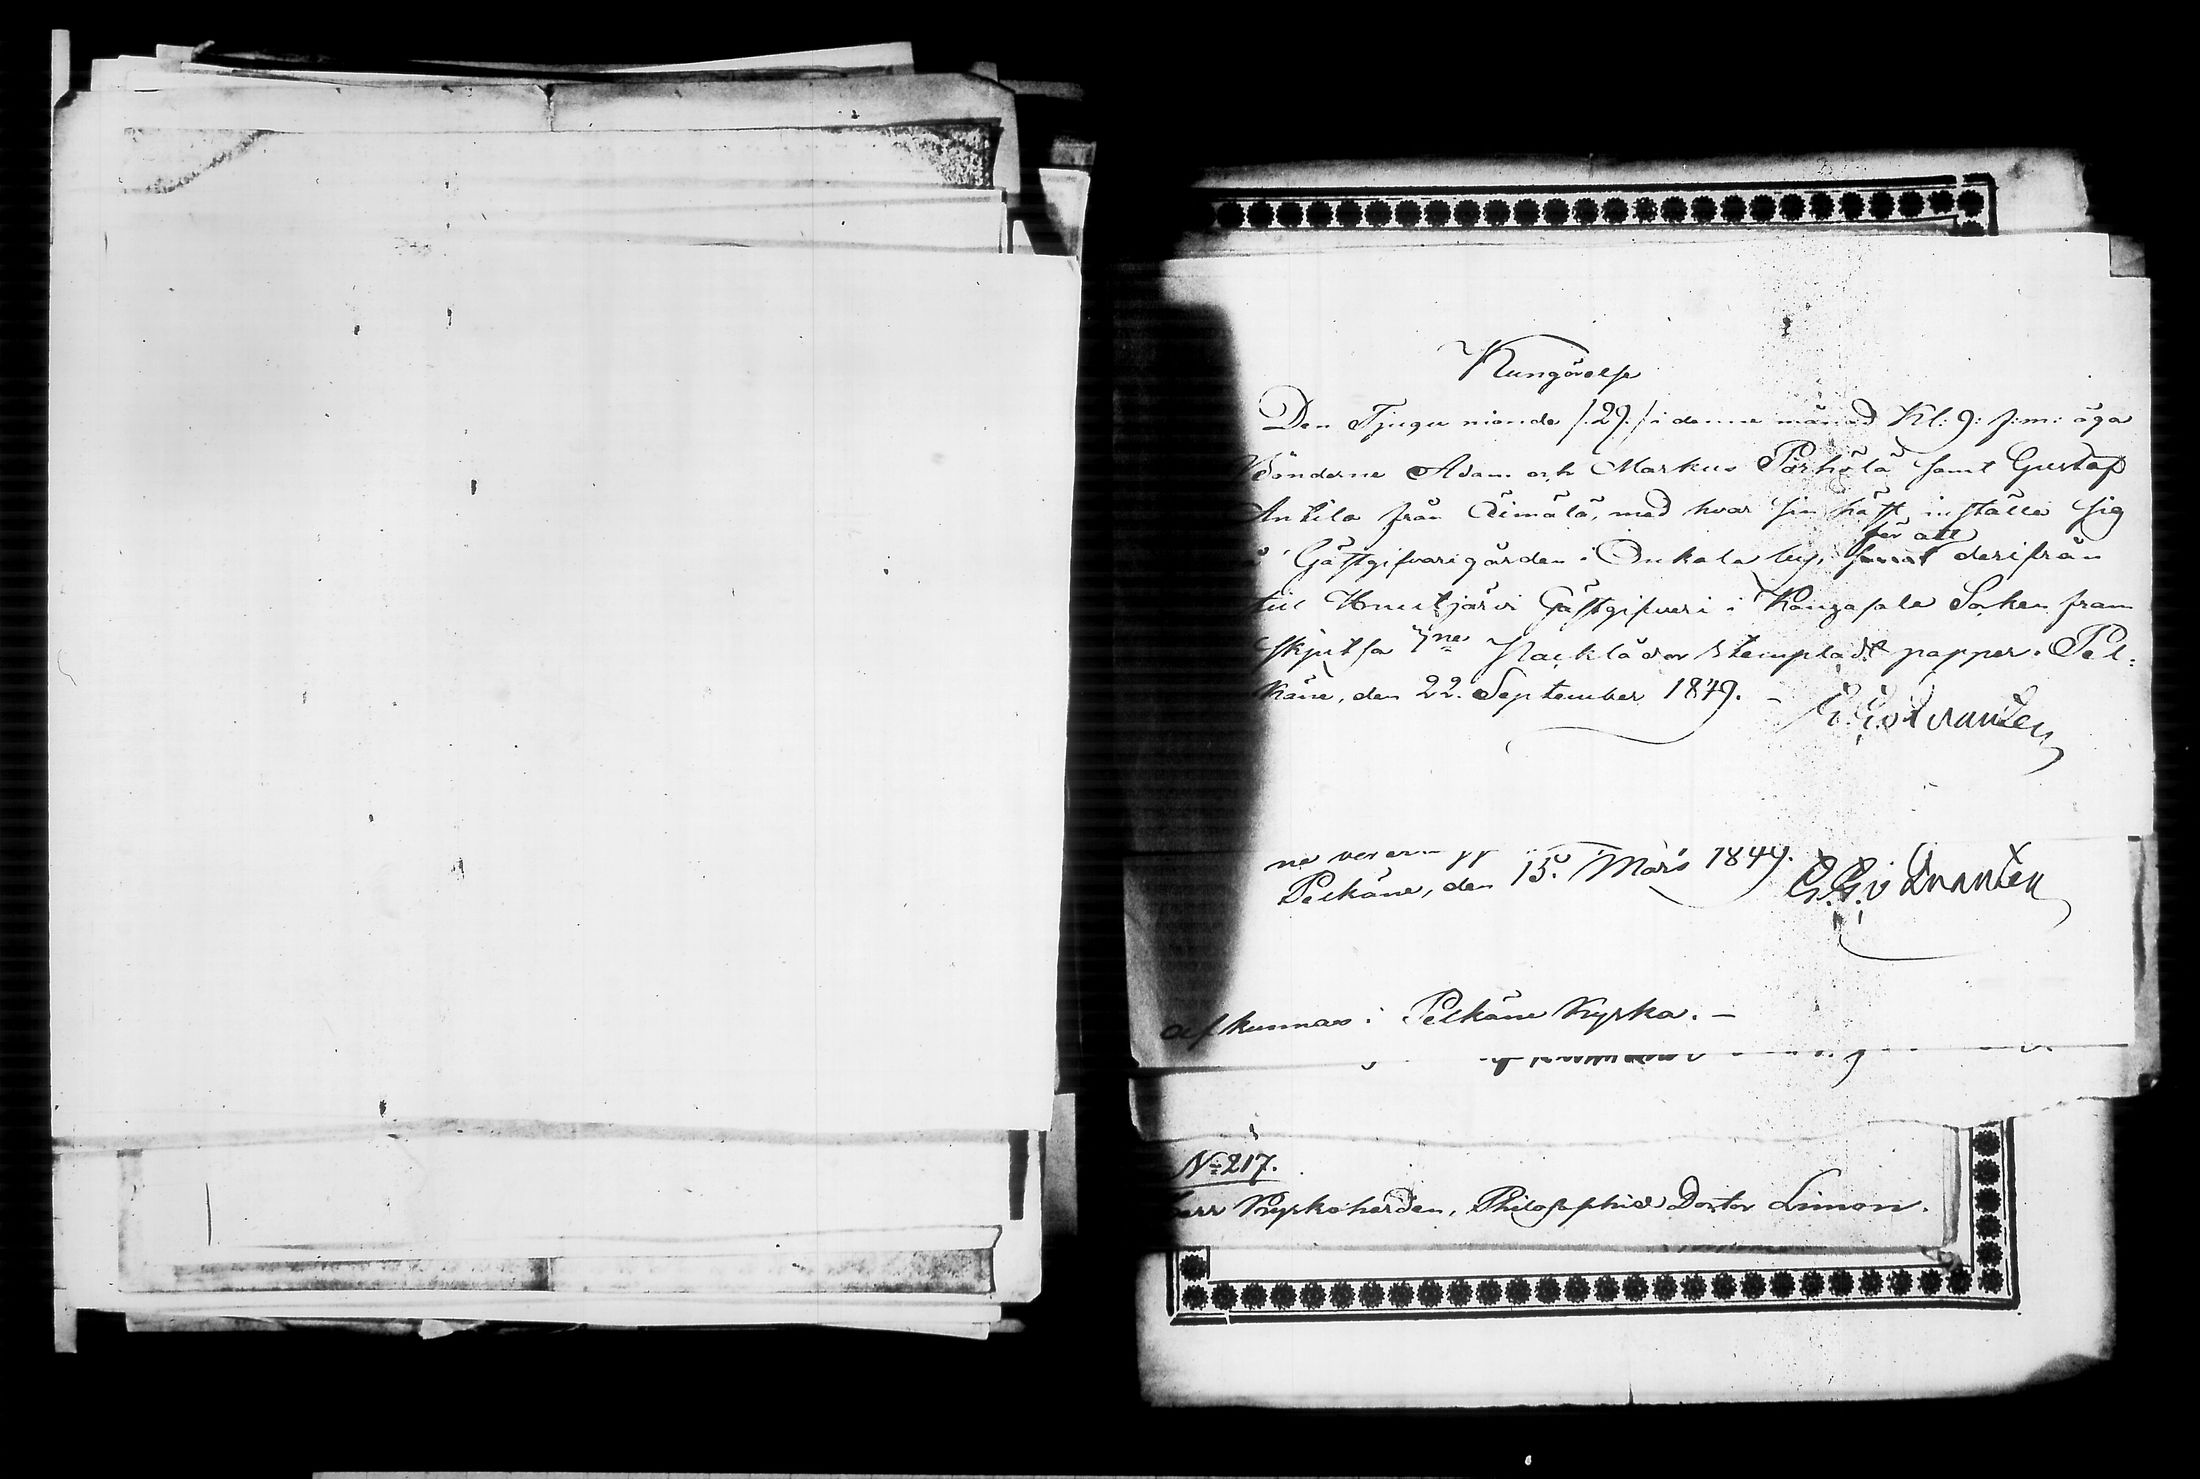 Kungörelse
Den Tjugu nionde /:29:/ i denne månad Kl: 9: f:m: äga
Bönderne Adam och Markus Pörhölä samt Gustaf
Antila från Äimälä, med hvar sin häst inställa sig
å Gästgifvarigården i Onkala by, för att derifrån
till Huutjärvi Gästgifveri i Kangasala Socken fram
skjutsa 7ne Packlådor stempladt papper. Pel-
käne, den 22. September 1849. –
Pelkäne, den 15. Mars 1849.
afkunnas i Pelkäne Kyrka. –
No 217.
Herr Kyrkoherden, Philosophie Doctor Limon.